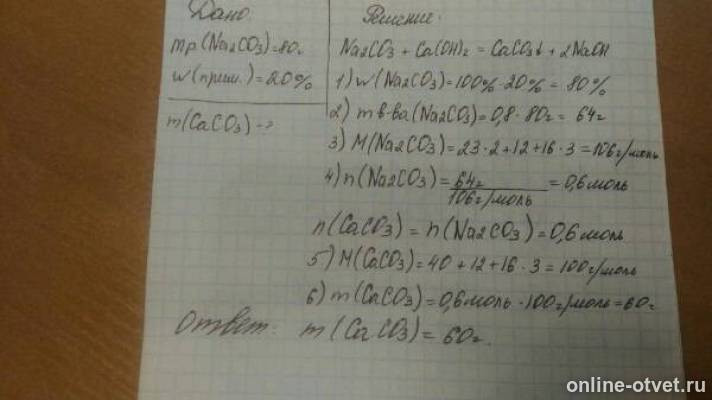 Дано:
mр(Na2CO3)=80г
w(прим.)=20%
m(CaCO3)-?
Решение:
Na2CO3 + Ca(OH)2 = CaCO3↓ + 2NaOH
1) w(Na2CO3)=100%-20%=80%
2) m в-ва(Na2CO3)=0,8·80г=64г
3) M(Na2CO3)=23·2+12+16·3=106г/моль
4) n(Na2CO3)=64г/106г/моль=0,6моль
n(CaCO3)=n(Na2CO3)=0,6моль
5) M(CaCO3)=40+12+16·3=100г/моль
6) m(CaCO3)=0,6моль·100г/моль=60г
Ответ: m(CaCO3)=60г.
online-otvet.ru